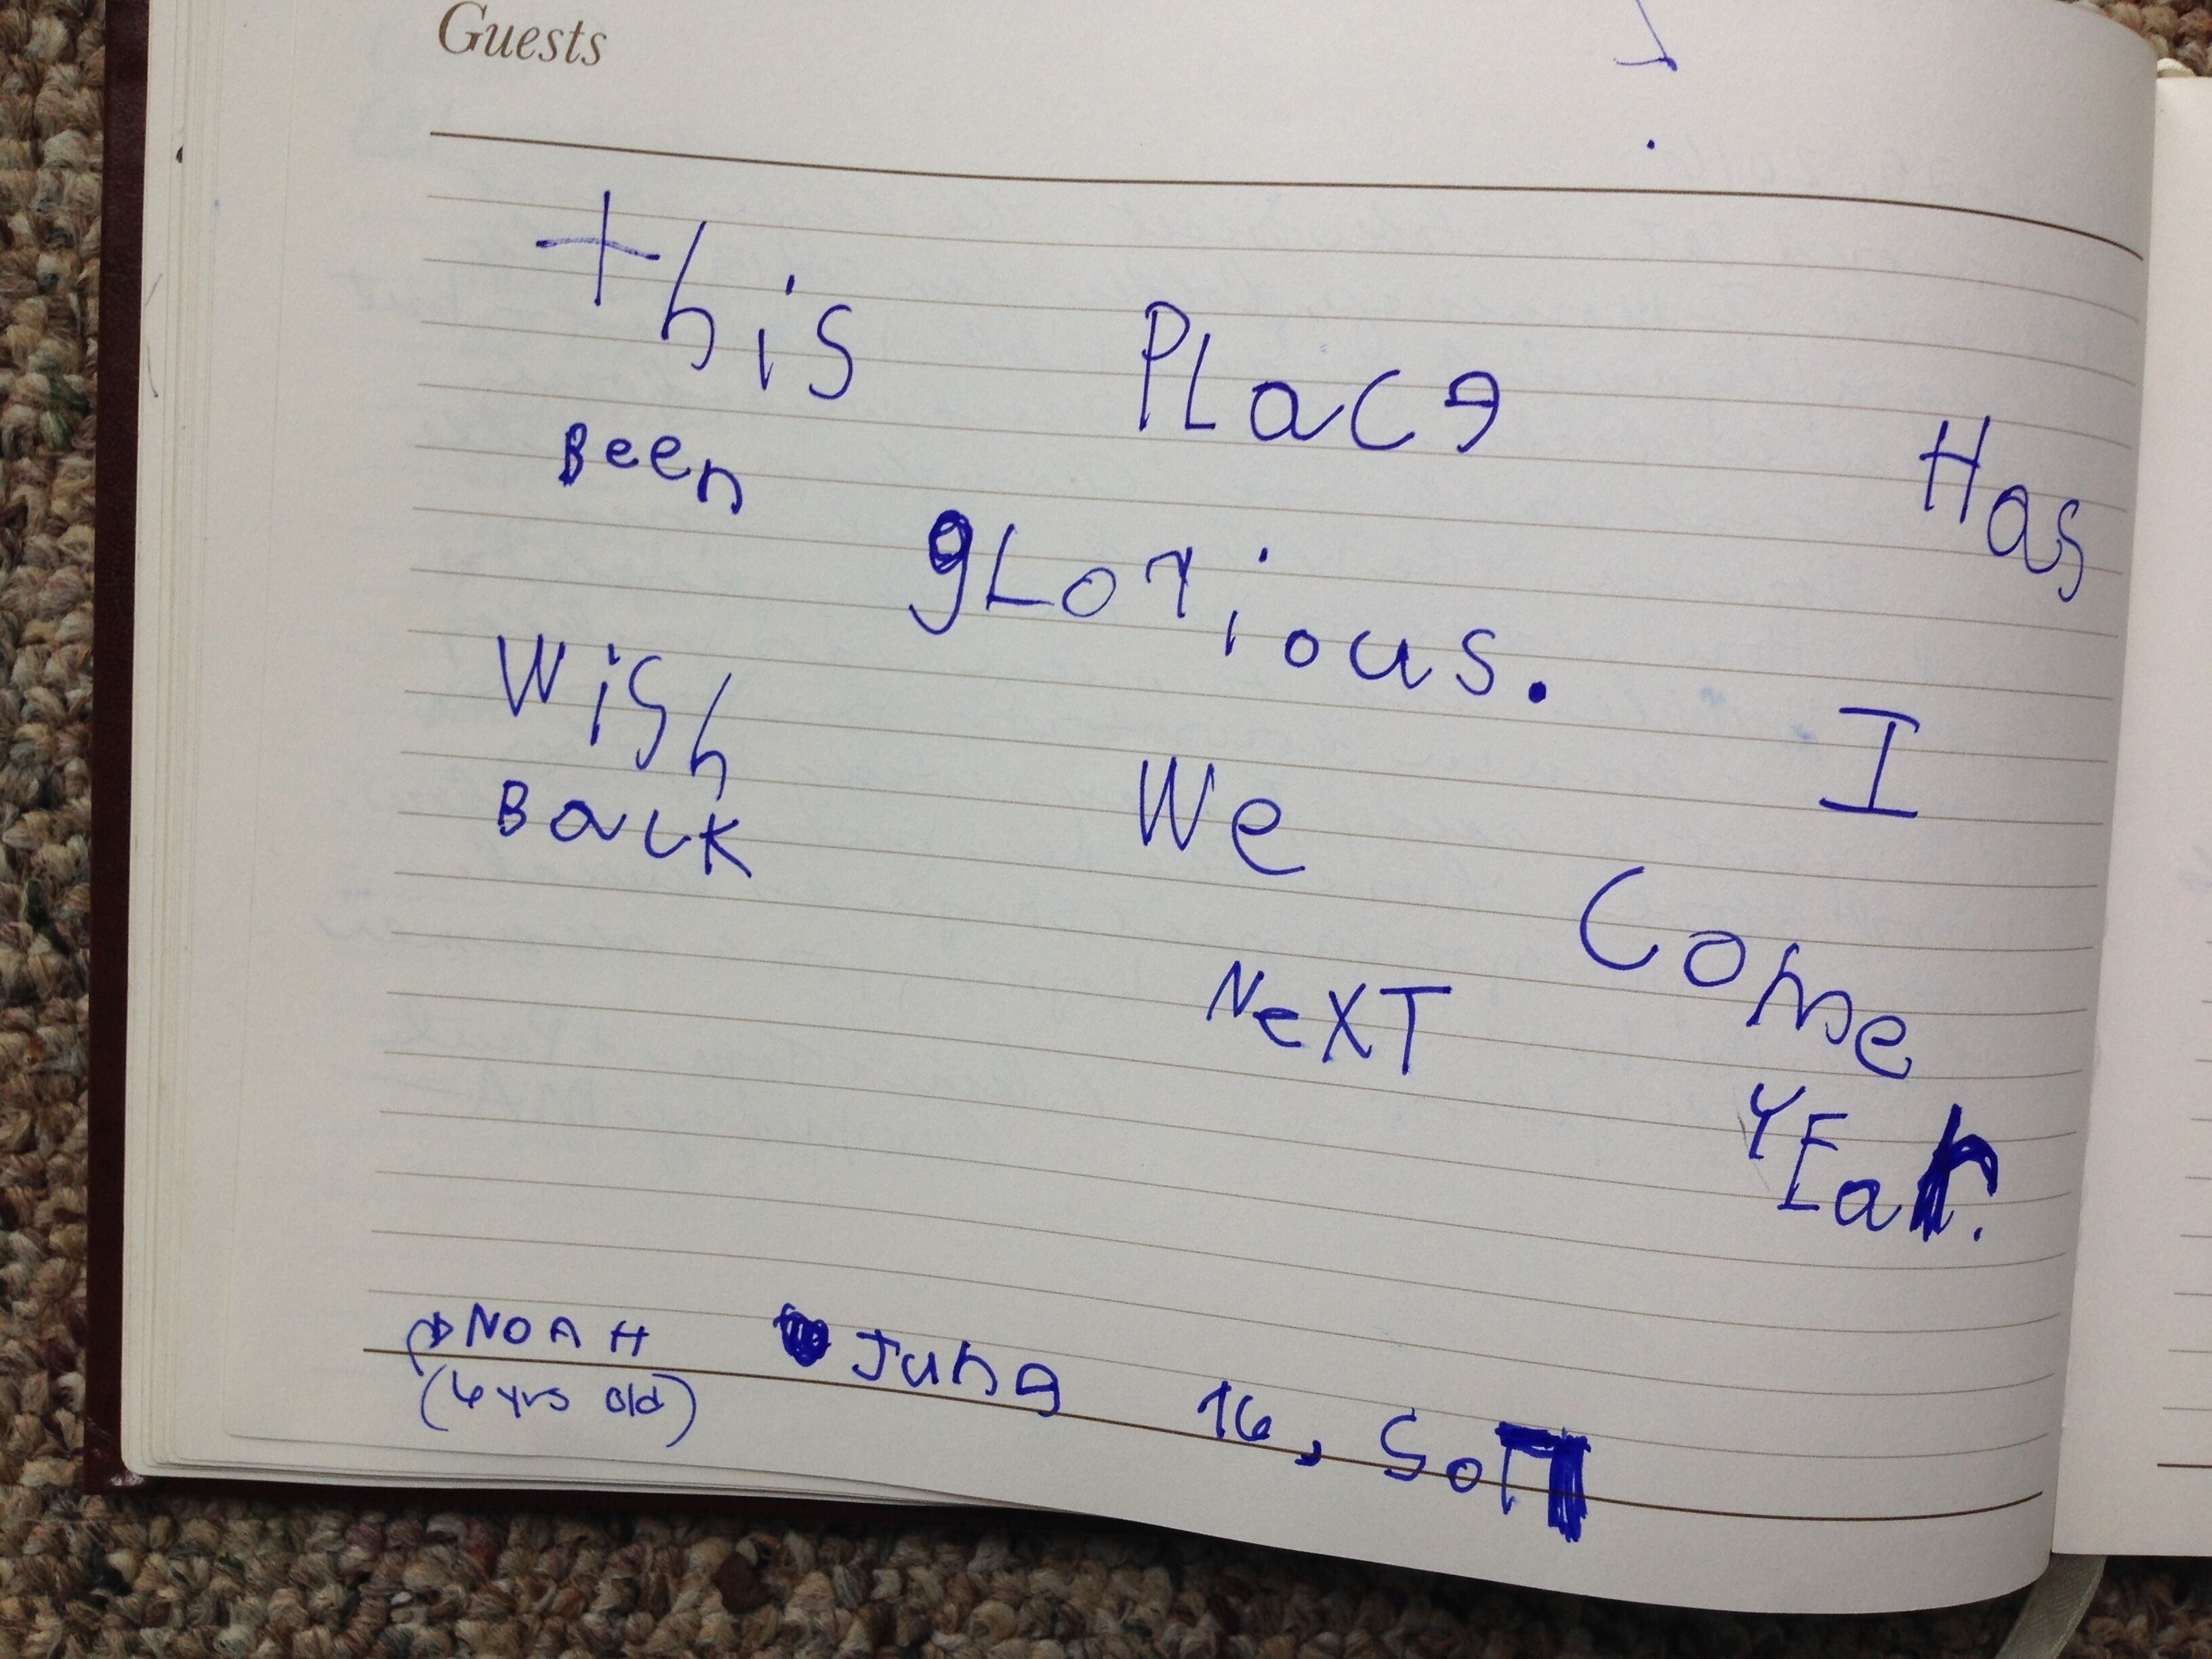 Guests
this PLace Has
Been gLorious. I
Wish We Come
Back NeXT YEar.
NOAH June 16,
(6 yrs old)